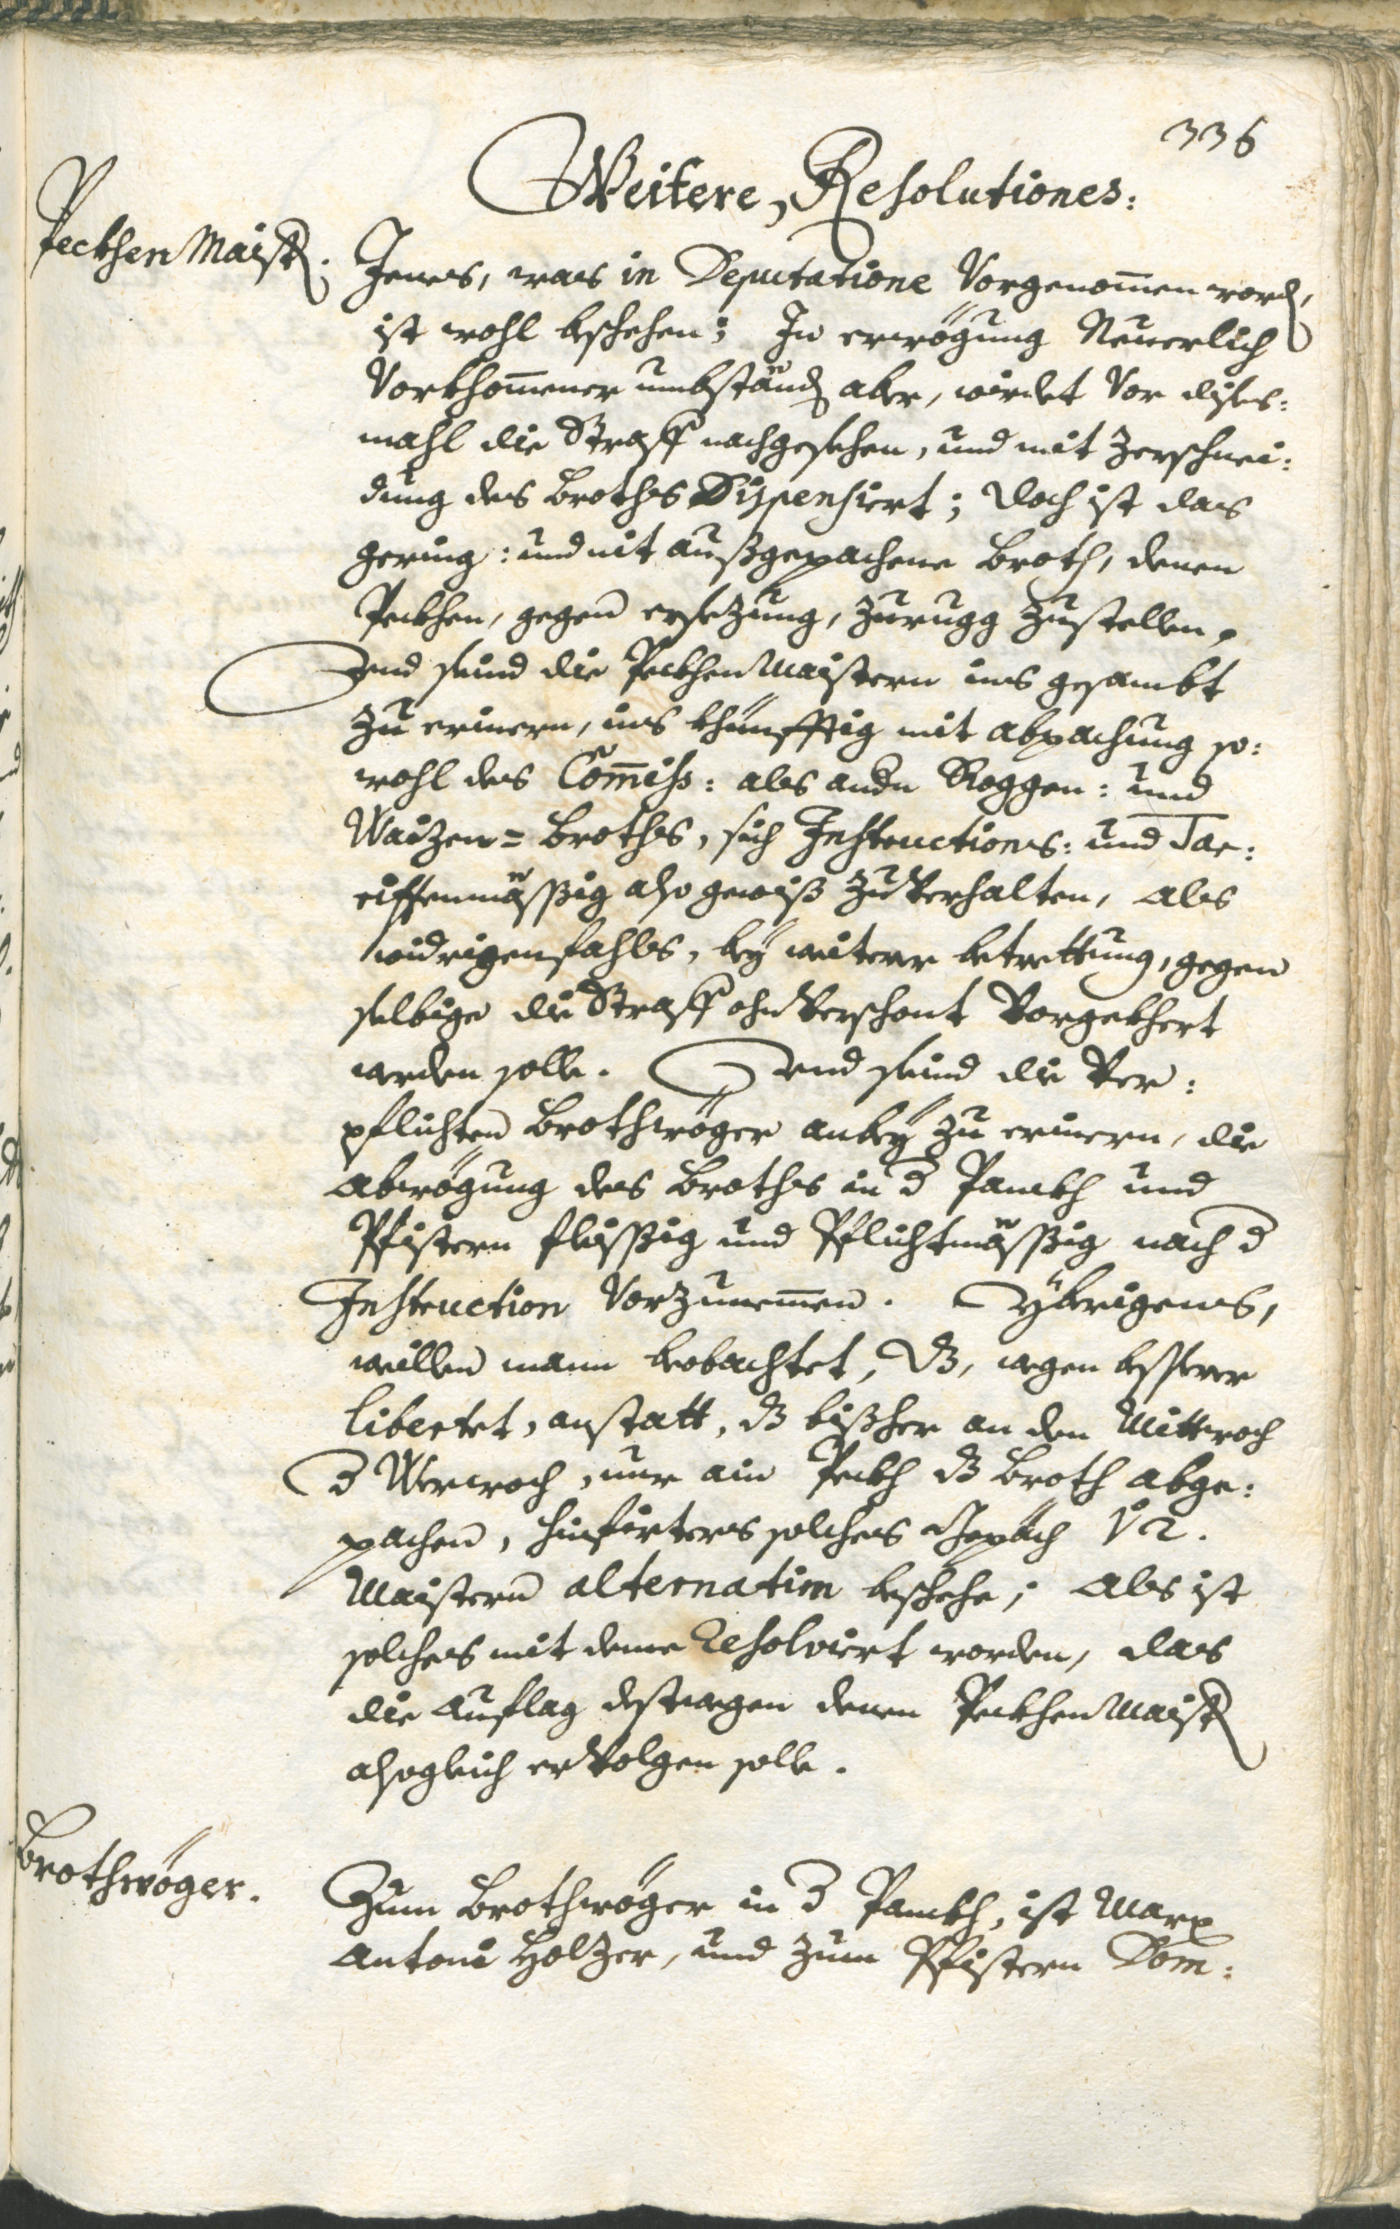 336
Weitere Resolutiones:
Peckhen Maistr.
Jenes, was in Deputatione Vorgenom̅en word,
ist wohl beschehen; In erwögung Neuerlich
Vorkhom̅ener umbständ aber, würdet Vor dises:
mahl die Straff nachgesehen, und mit Zerschnei:
dung des Broths Dispensiert; Doch ist das
gering: und nit außgepachene Broth, denen
Peckhen, gegen ersezung, Zurugg Zustellen,
Und seind die Peckhen Maistern ins gesambt
Zu erinern, ins khünfftig mit abpachung so:
wohl des Com̅iß: als andn Roggen: und
Waizen= Broths, sich Instructions: und Tar:
riffenmässig also gewiß Zu Verhalten, als
widrigenfahls, bey weiterer betrettung, gegen
selbige die Straff ohn Verschont Vorgekhert
werden solle. Und seind die Ver:
pflichten Brothwöger anbey Zu erinern, die
Abwögung des Broths in d Panckh und
Pfistern fleissig und Pflichtmässig nach d
Instruction Vorzunem̅en. Ybrigens,
weillen mann beobachtet, dz, wegen besserer
libertet, anstatt, dz bißher an den Mittwoch
d Marwoch, nur ain Peckh dz Broth abge:
pachen, hinfürters solches Gepäch 12.
Maistern alternatim beschehe; Als ist
solches mit deme Resolviert worden, das
die Auflag destwegen denen Peckhen Maistr
alsogleich erVolgen solle.
Brothwöger.
Zum Brothwöger in d Panckh, ist Marx
Antoni Holzer, und Zum Pfistern Dom: